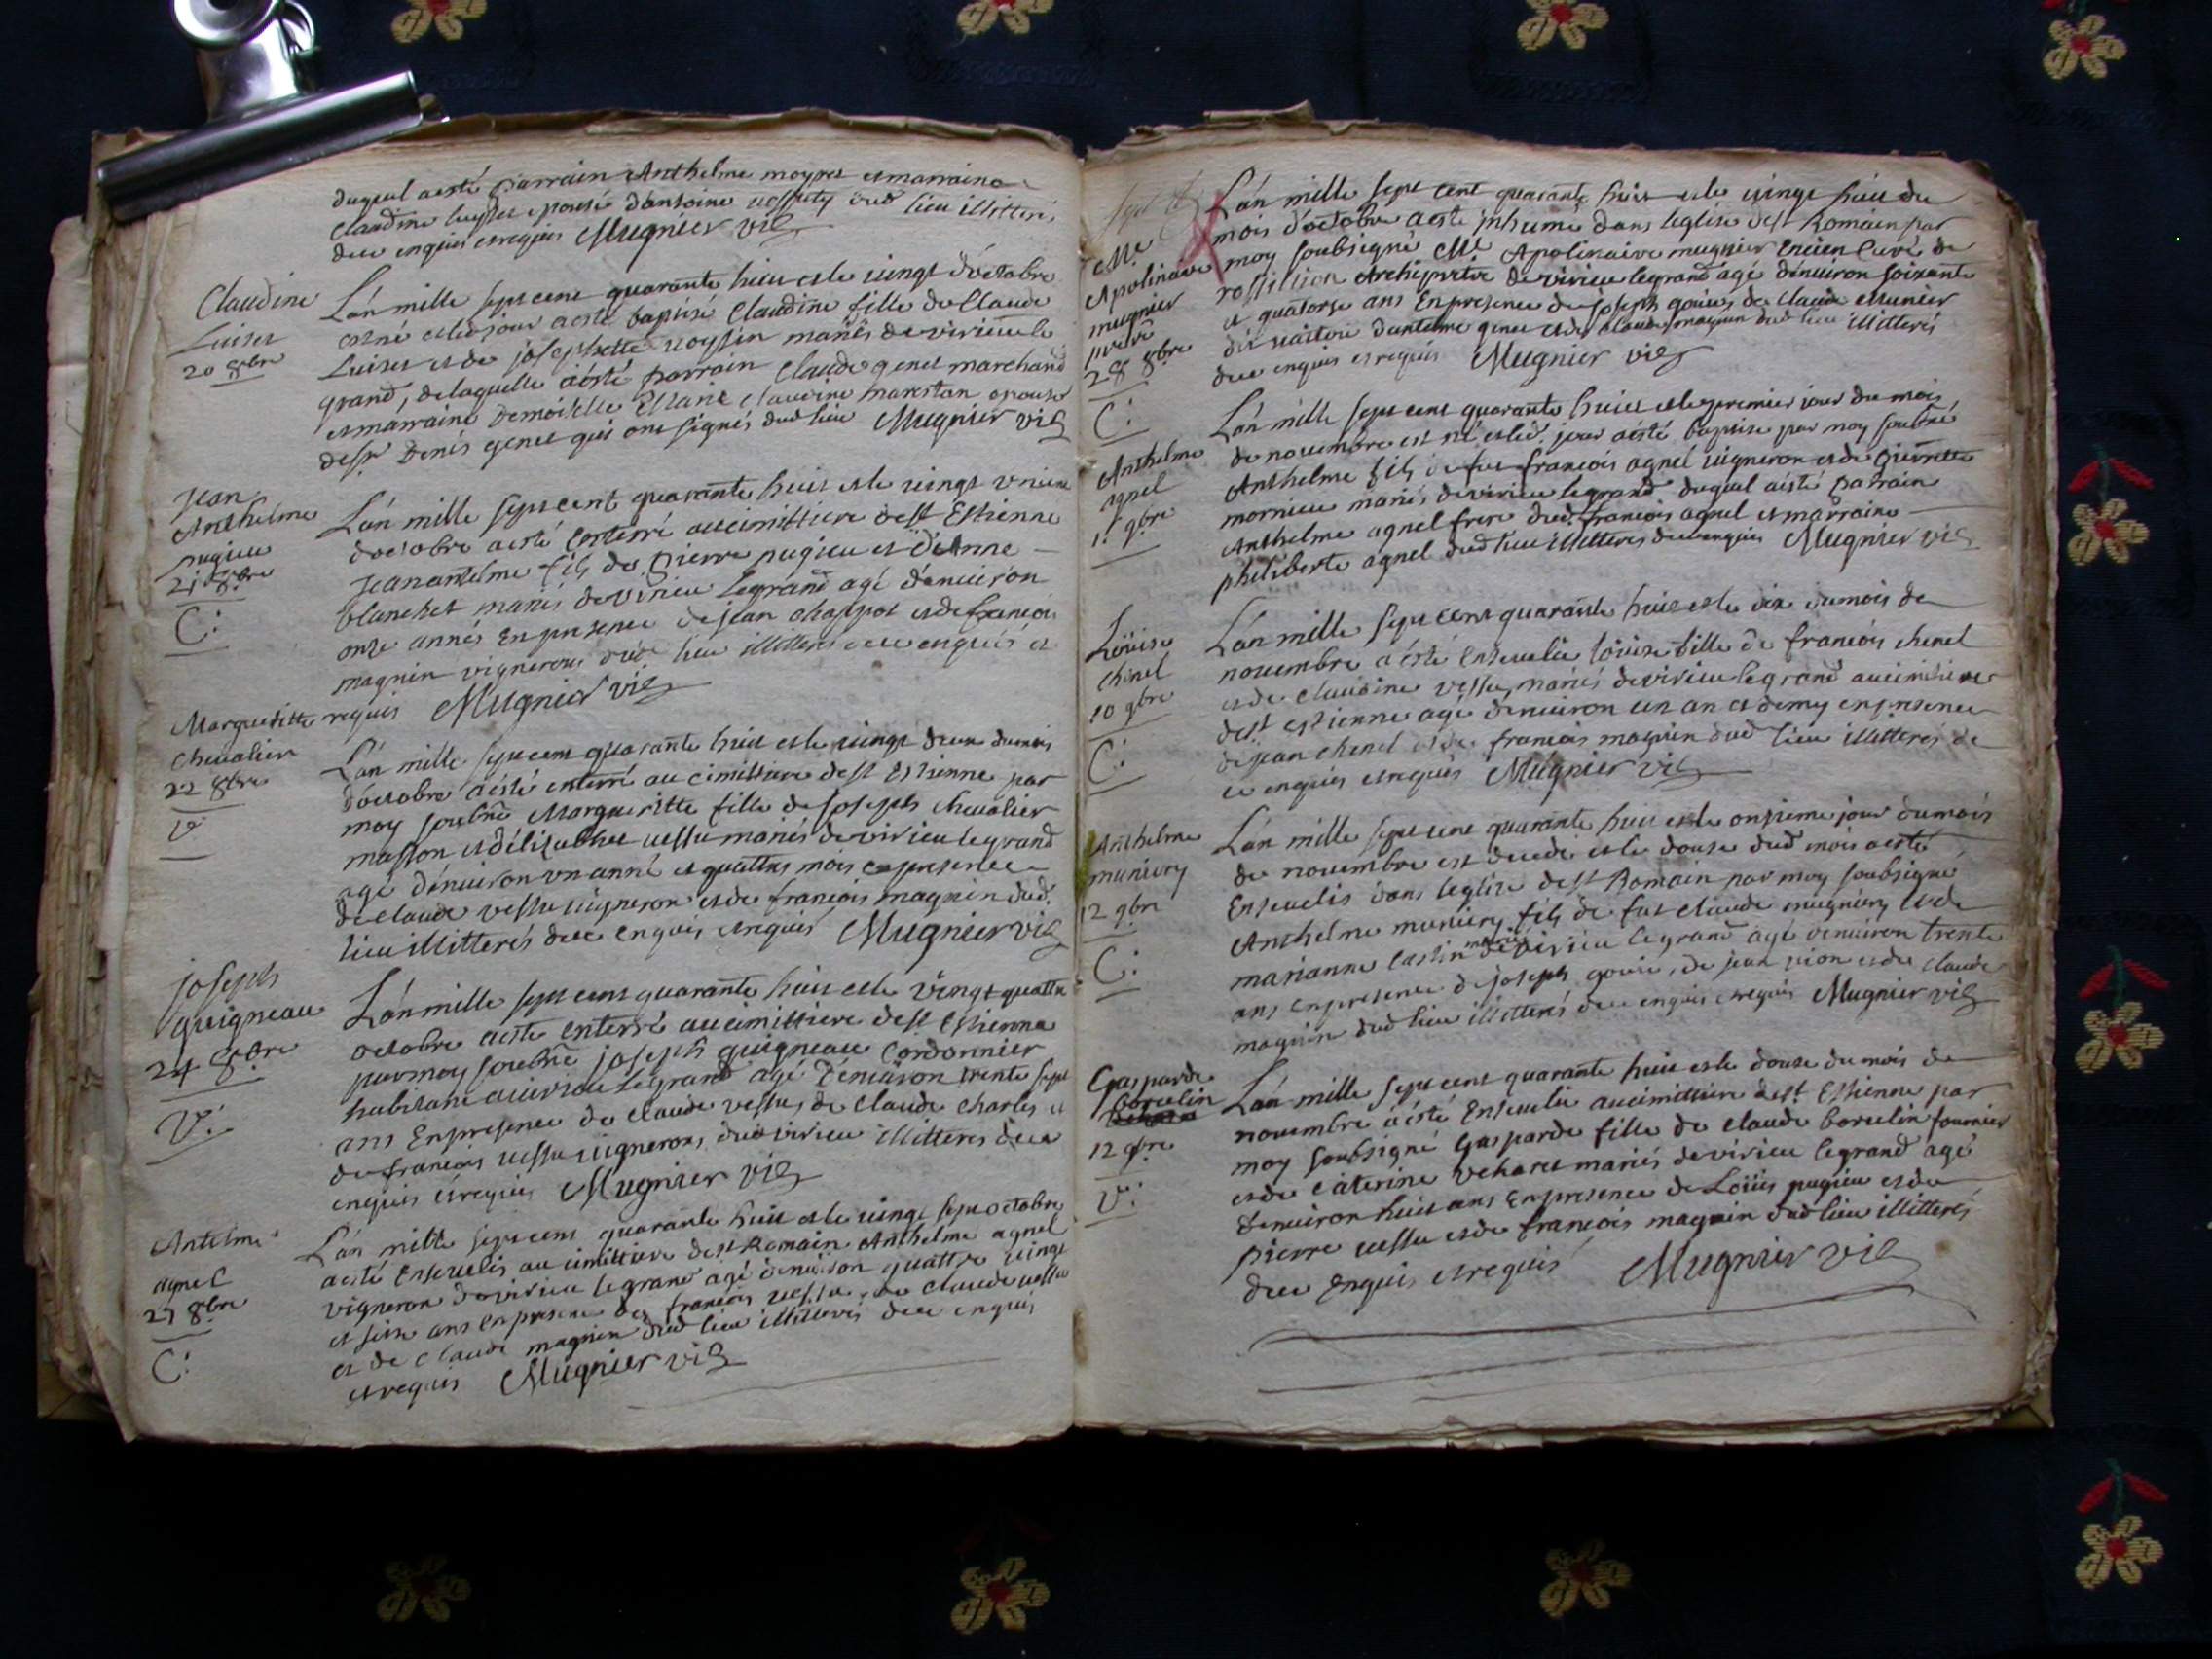 duquel aesté parrain Anthelme moyret et marraine
Claudine luyset epouse d'antoine dud lieu illitterés
de ce enquis et requis Mugnier vic
Claudine
Luiset
20 8bre
L'an mille sept cent quarante huit et le vingt d'octobre
est né et led jour aesté baptisé Claudine fille de Claude
Luiset et de josephette voysin mariés de virieu le
grand, de laquelle aésté parrain Claude genet marchand
et marraine Demoiselle Marie Claudine epouse
de sr Denis genet qui ont signés dud lieu Mugnier vic
Jean
Anthelme
pugieu
21 8bre
C:
L'an mille sept cent quarante huit et le vingt unieme
d'octobre aesté enterré au cimittiere de st Estienne
Jean antelme fils de Pierre pugieu et d'Anne
blanchet mariés de virieu le grand agé d'environ
onze années en presence de jean chappot et de francois
magnin vignerons dud lieu illitterés de ce enquis et
requis Mugnier vic
Margueritte
Chevalier
22 8bre
V
L'an mille sept cent quarante huit et le vingt deux du mois
d'octobre aésté enterré au cimittiere de st Estienne par
moy soubné Margueritte fille de joseph chevalier
masson et d'élisabet vessu mariés de virieu le grand
agé d'environ un anné et quattres mois en presence
de claude vessu vigneron et de francois magnin dud
lieu illitterés de ce enquis et requis Mugnier vic
joseph
guigneau
24 8bre
V:
L'an mille sept cent quarante huit et le vingt quattre
octobre aesté enterré au cimittiere de st Estienne
par moy soubné joseph guigneau Cordonnier
habitant a virieu le grand agé d'environ trente sept
ans en presence de claude vessu, de claude charles et
de francois vessu vignerons dud virieu illitterés de ce
enquis et requis Mugnier vic
Antelme
agnel
27 8bre
C:
L'an mille sept cent quarante huit et le vingt sept octobre
aesté ensevelis au cimittiere de st Romain Anthelme agnel
vigneron de virieu le grand agé d'environ quattre vingt
et seize ans en presence de francois vessu, de claude vessu
et de claude magnin dud lieu illitterés de ce enquis
et requis Mugnier vic
Mre
Apolinaire
mugnier
pretre
28 8bre
C:
L'an mille sept cent quarante huit et le vingt huit du
mois d'octobre aesté inhumé dans leglise de st Romain par
moy soubsigné Mre Apolinaire mugnier Encien Curé de
rossillion Archipretre de virieu le grand agé d'environ soixante
et quatorze ans En presence de joseph gouies de claude Munier
dit d'antelme genet et de claude magnin dud lieu illitterés
de ce enquis et requis Mugnier vic
Anthelme
agnel
1r 9bre
L'an mille sept cent quarante huit et le premier jour du mois
de novembre est né et led. jour aésté baptisé par moy soubné
Anthelme fils de feu francois agnel vigneron et de pierrette
mornieu mariés de virieu le grand duquel aésté parrain
Anthelme agnel frere dud francois agnel et marraine
philiberte agnel dud lieu illitterés de ce enquis Mugnier vic
Loüise
chenel
10 9bre
C:
L'an mille sept cent quarante huit et le dix du mois de
novembre aésté ensevelie loüise fille de francois chenel
et de claudine vessu mariés de virieu le grand au cimitiere
de st estienne agé d'environ un an et demy en presence
de jean chenel et de francois magnin dud lieu illitterés de
ce enquis et requis Mugnier vic
Anthelme
muniery
12 9bre
C:
L'an mille sept cent quarante huit et le onzieme jour du mois
de novembre est decede et le douze dud mois aesté
Ensevelis dans leglise de st Romain par moy soubsigné
Anthelme muniery fils de feu claude mugniery et de
marianne castin mariés de virieu le grand agé d'environ trente
ans en presence de joseph gouies, de jean pion et de claude
magnin dud lieu illitterés de ce enquis et requis Mugnier vic
Gasparde
borcelin
12 9bre
V:
L'an mille sept cent quarante huit et le douze du mois de
novembre aésté Ensevelie au cimittiere de st Estienne par
moy soubsigné Gasparde fille de claude borcelin fournier
et de Caterine mariés de virieu le grand agé
d'environ huit ans en presence de Loüis pugieu et de
pierre vessu et de francois magnin dud lieu illitterés
de ce enquis et requis Mugnier vic